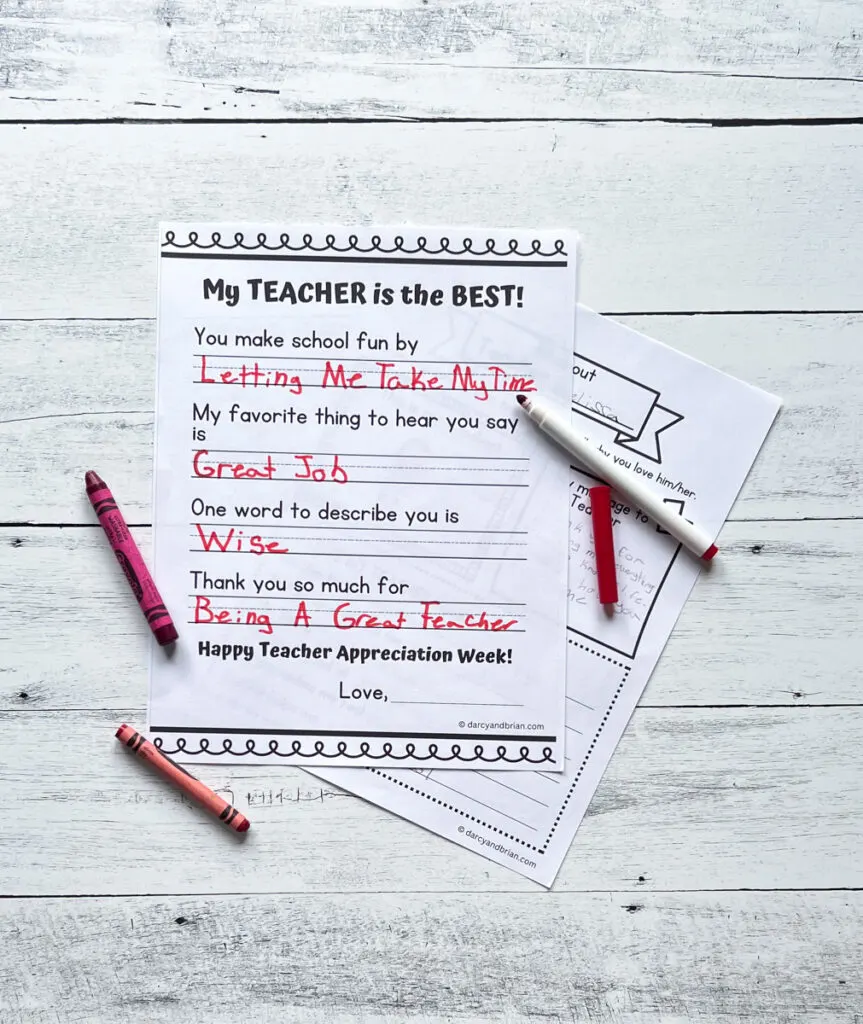 My TEACHER is the BEST!
You make school fun by
Letting Me Take My Time
My favorite thing to hear you say
is
Great Job
One word to describe you is
Wise
Thank you so much for
Being A Great Teacher
Happy Teacher Appreciation Week!
Love,
© darcyandbrian.com
out
you love him/her.
to
for
© darcyandbrian.com